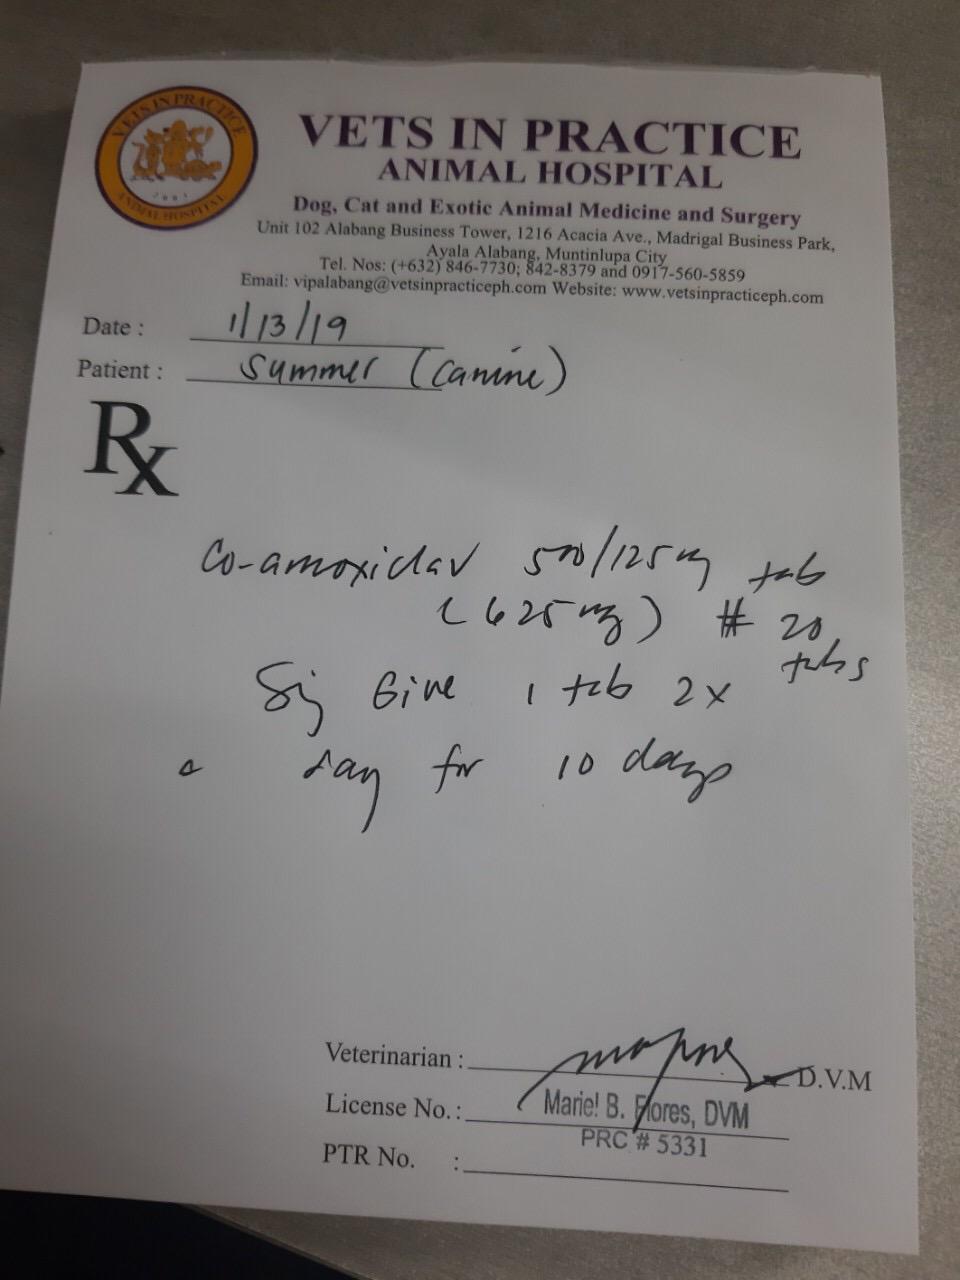 VETS IN PRACTICE
2003
ANIMAL HOSPITAL
VETS IN PRACTICE
ANIMAL HOSPITAL
Dog, Cat and Exotic Animal Medicine and Surgery
Unit 102 Alabang Business Tower, 1216 Acacia Ave., Madrigal Business Park,
Ayala Alabang, Muntinlupa City
Tel. Nos: (+632) 846-7730; 842-8379 and 0917-560-5859
Email: vipalabang@vetsinpracticeph.com Website: www.vetsinpracticeph.com
Date : 1/13/19
Patient : Summer (canine)
Rx
Co-amoxiclav 500/125mg tab
(625mg) # 20
tabs
Sig Give 1 tab 2x
a day for 10 days
Veterinarian : D.V.M
License No. : Mariel B. Flores, DVM
PRC # 5331
PTR No. :